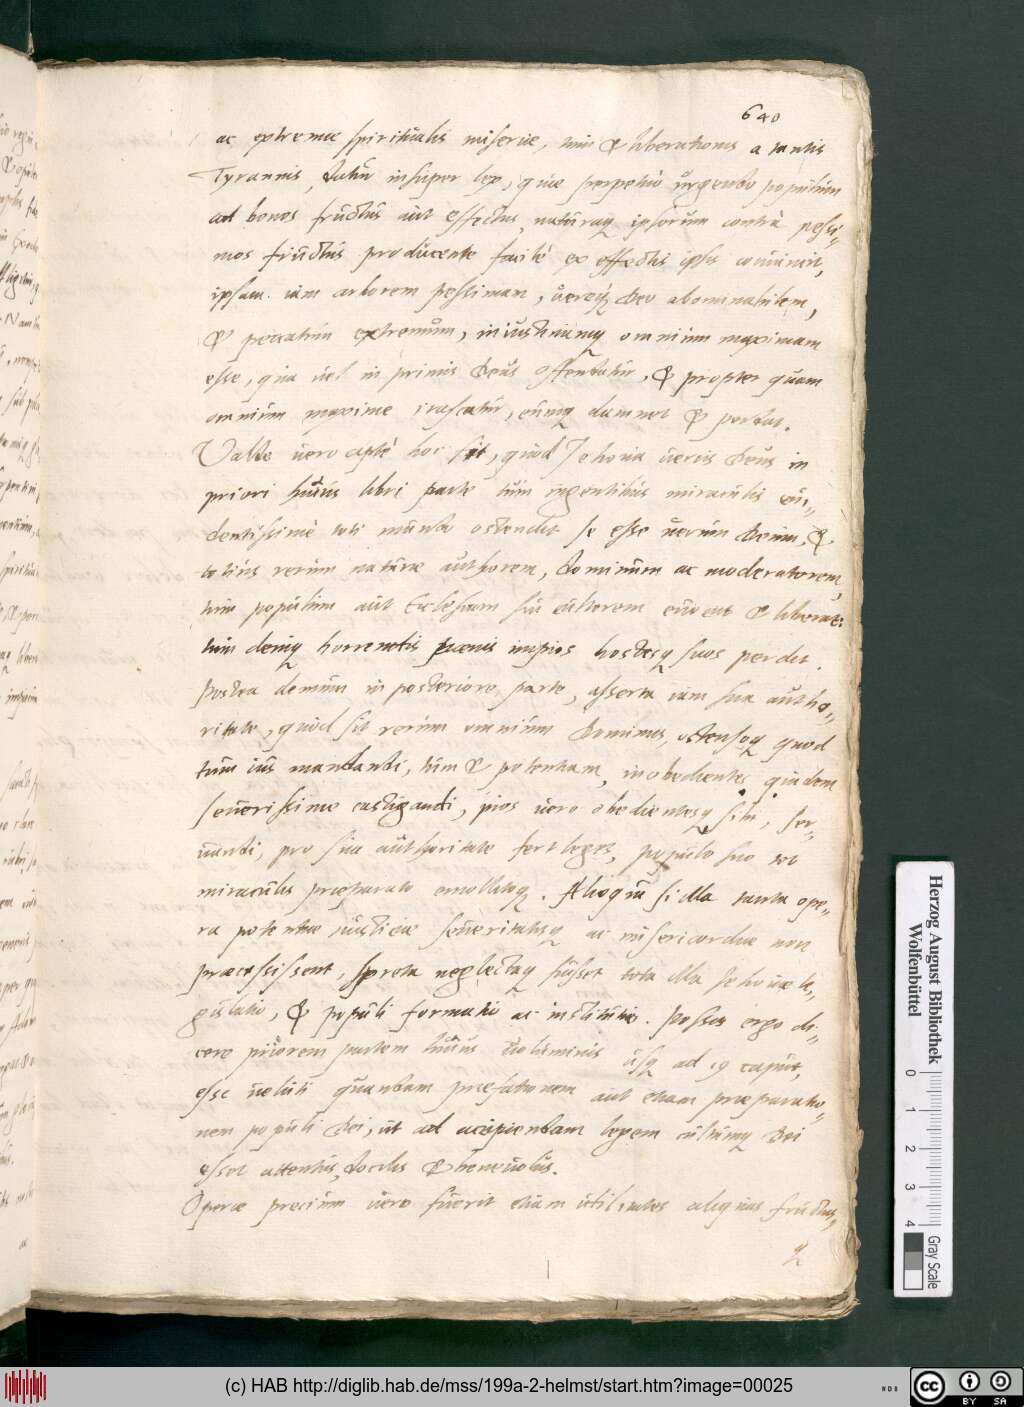 640
ac extremae spiritualis miseriae, tum & liberationis a tantis
Tyrannis, datur insuper lex, quae perpetuo urgendo populum
ad bonos fructus aut effectus, naturaq ipsorum contra pessi„
mos fructus producente facile ex effectis ipsis convincit,
ipsam iam arborem pessimam, vereq Deo abominabilem,
& peccatum extremum, iniustitiamq omnium maximam
esse, qua vel in primis Deus offendatur, & propter quam
omnium maxime irascatur, eumq damnet & perdat.
Valde vero apte hoc fit, quod Jehova verus Deus in
priori huius libri parte tum ingentibus miraculis evi„
dentissime toti mundo ostendit se esse verum Deum, &
totius rerum naturae authorem, dominum ac moderatorem,
tum populum aut Ecclesiam sui cultorem evocat & liberat:
tum deniq horrendis poenis impios hostesq suos perdit.
Postea demum in posteriore parte, asserta iam sua autho„
ritate, quod sit rerum omnium Dominus, ostensoq quod
tum ius mandandi, tum & potentiam, inobedientes quidem
severissime castigandi, pios vero obedientesq sibi, ser„
vandi, pro sua authoritate fert leges, populo suo tot
miraculis praeparato emollitoq. Alioqui si illa tanta ope„
ra potentiae iusticiae severitatisq ac misericordiae non
praecessissent, spreta neglectaq fuisset tota illa Jehovae le„
gislatio, & populi formatio ac institutio. Possis ergo di„
cere priorem partem huius voluminis usq ad 19 caput,
esse veluti quandam praefationem aut etiam praeparatio„
nem populi Dei, ut ad accipiendam legem cultumq Dei
esset attentus, docilis & benevolus.
Operae precium vero fuerit etiam utilitates aliquas fructus„
q
Herzog August Bibliothek
Wolfenbüttel
0 1 2 3 4
Gray Scale
(c) HAB http://diglib.hab.de/mss/199a-2-helmst/start.htm?image=00025
cc BY SA